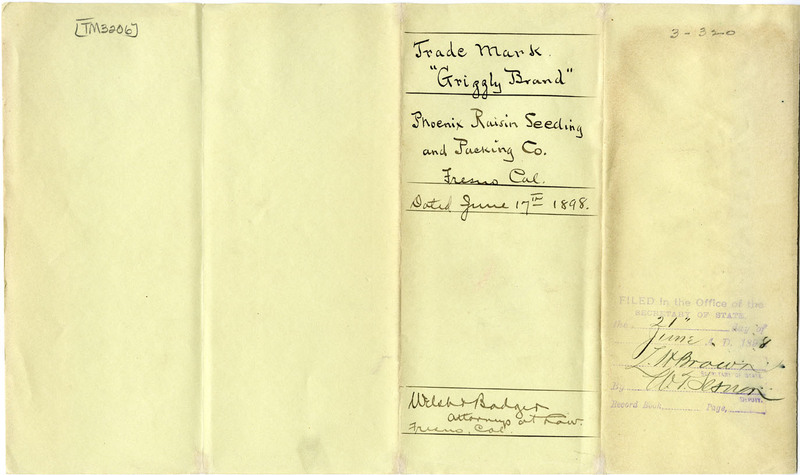 [TM3206]
Trade Mark.
"Grizzly Brand"
Phoenix Raisin Seeding
and Packing Co.
Fresno Cal.
Dated June 17th 1898.
Welsh & Badger
Attorneys at Law.
Fresno, Cal.
3-320
FILED in the Office of the
SECRETARY OF STATE,
the 21" day of
June A. D. 1898
L. H. Brown
SECRETARY OF STATE.
By
DEPUTY.
Record Book Page